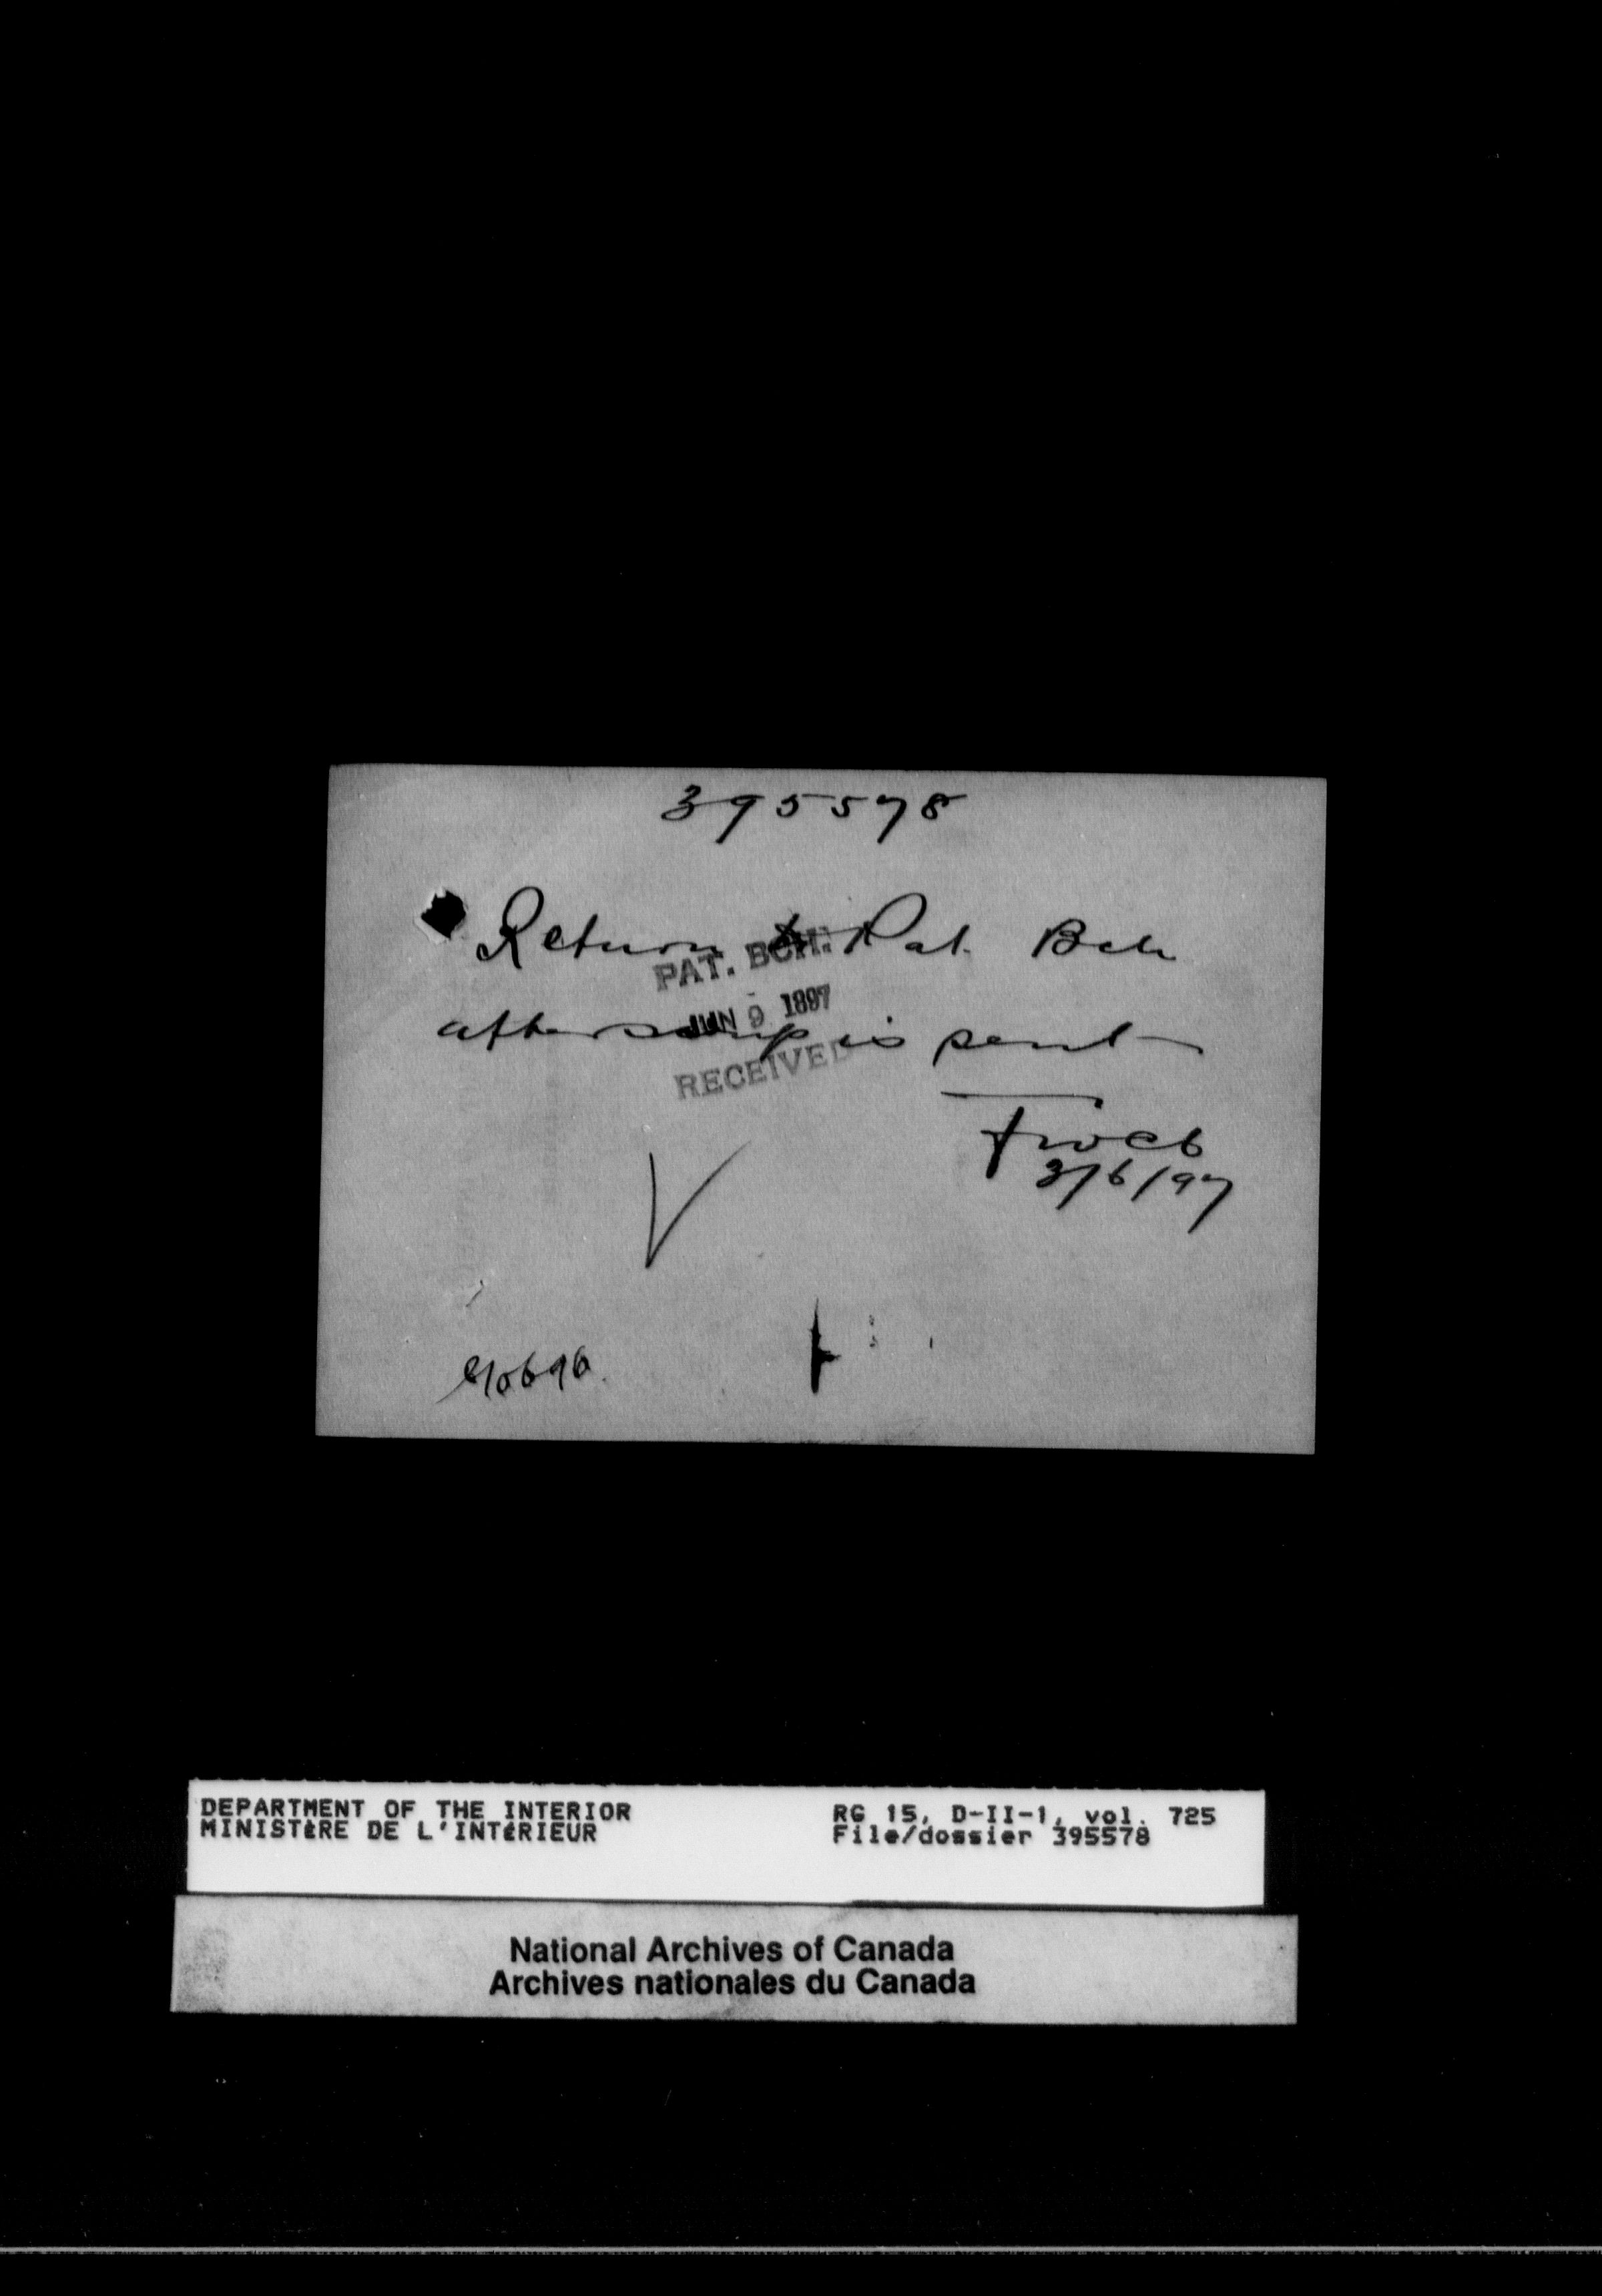 395578
Return to Pat. Bch
PAT. BCH.
JUN 9 1897
after scrip is sent
RECEIVED
3/6/97
DEPARTMENT OF THE INTERIOR
MINISTÈRE DE L'INTÉRIEUR
RG 15, D-II-1, vol. 725
File/dossier 395578
National Archives of Canada
Archives nationales du Canada